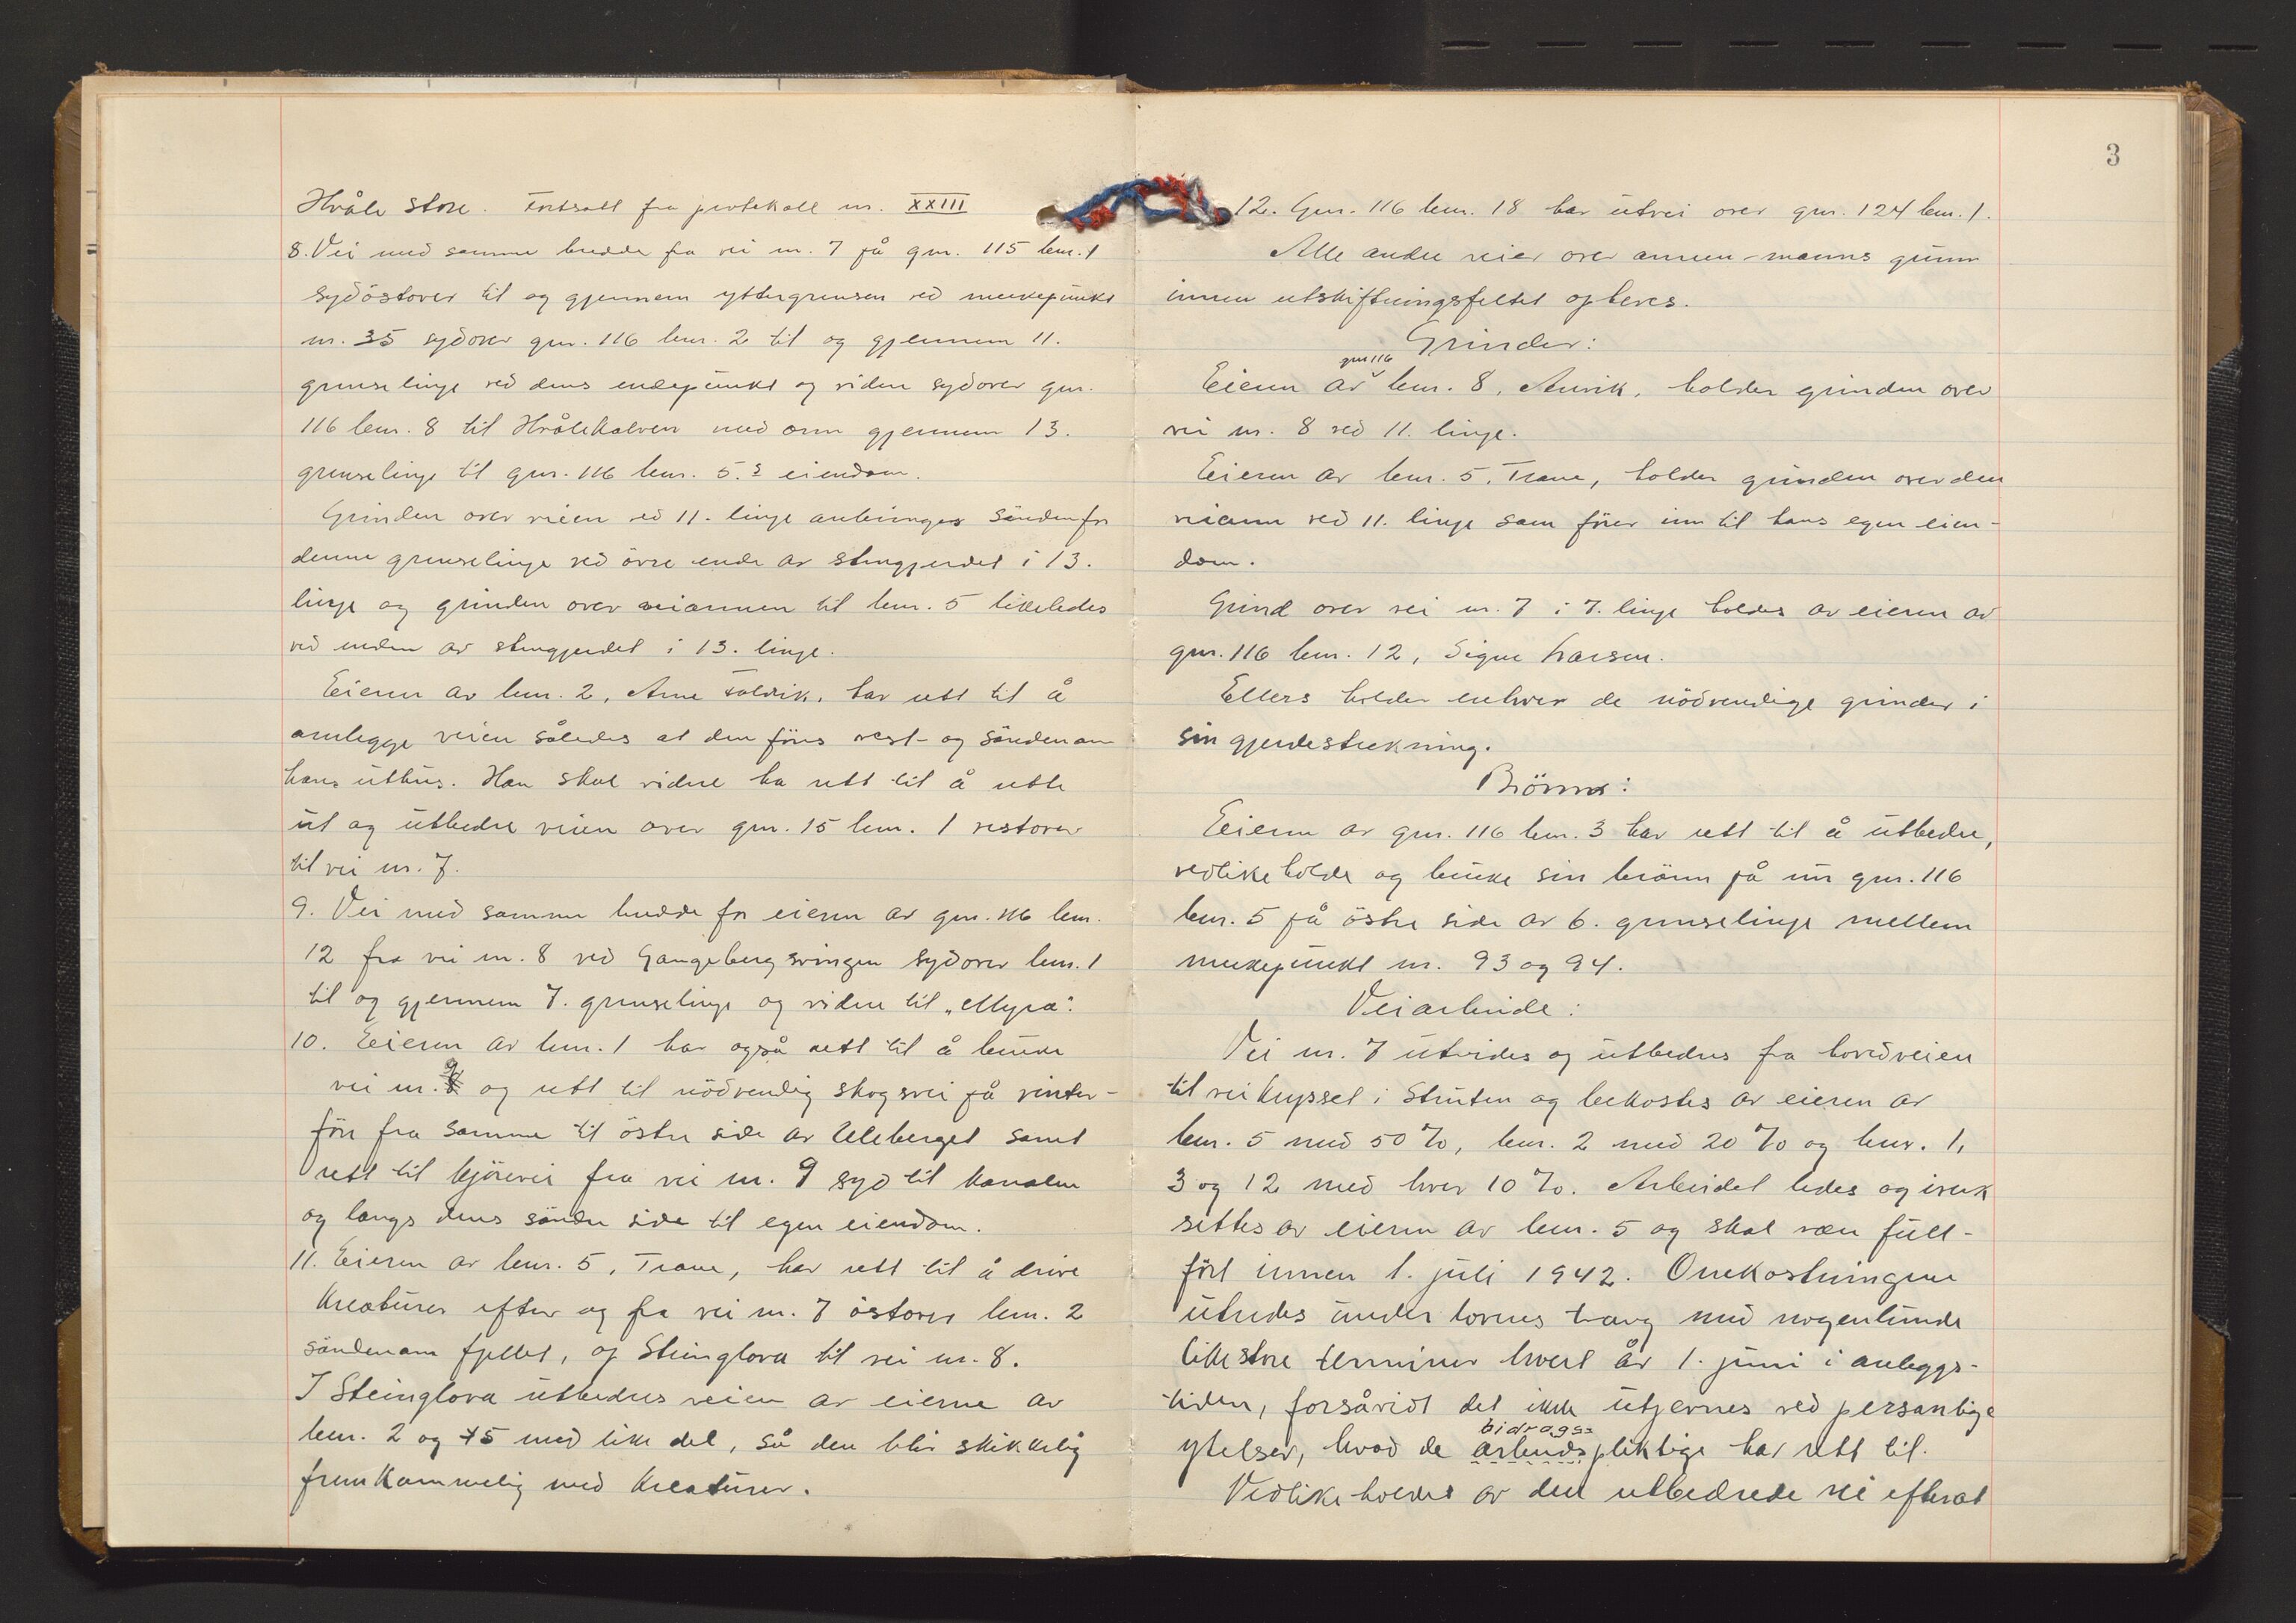 Hråle store. Fortsatt fra protokoll nr. XXIII
8. Vei med samme bredde fra vei nr. 7 på gnr. 115 bnr. 1
sydöstover til og gjennem yttergrensen ved merkepunkt
nr. 35 sydover gnr. 116 bnr. 2 til og gjennem 11.
grenselinje ved dens endepunkt og videre sydover gnr.
116 bnr. 8 til Hrålekalven med arm gjennem 13.
grenselinje til gnr. 116 bnr. 5.s eiendom.
Grinden over veien ved 11. linje anbringes söndenfor
denne grenselinje ved övre ende av stengjerdet i 13.
linje og grinden over veiarmen til bnr. 5 likeledes
ved enden av stengjerdet i 13. linje.
Eieren av bnr. 2, Arne Foldvik, har rett til å
omlegge veien således at den föres vest- og söndenom
hans uthus. Han skal videre ha rett til å rette
ut og utbedre veien over gnr. 15 bnr. 1 vestover
til vei nr. 7.
9. Vei med samme bredde for eieren av gnr. 116 bnr.
12 fra vei nr. 8 ved Gangebergsvingen sydover bnr. 1
til og gjennem 7. grenselinje og videre til „Myra“.
10. Eieren av bnr. 1 har også rett til å bruke
vei nr. 9 og rett til nödvendig skogsvei på vinter-
före fra samme til östre side av Uleberget samt
rett til kjörevei fra vei nr. 9 syd til kanalen
og langs dens söndre side til egen eiendom.
11. Eieren av bnr. 5, Trane, har rett til å drive
kreaturer efter og fra vei nr. 7 östover bnr. 2
söndenom fjellet, og Steinglova til vei nr. 8.
I Steinglova utbedres veien av eierne av
bnr. 2 og 5 med like del, så den blir skikkelig
fremkommelig med kreaturer.
3
12. Gnr. 116 bnr. 18 har utvei over gnr. 124 bnr. 1.
Alle andre veier over annen-manns grunn
innen utskiftningsfeltet opheves.
Grinder:
gnr 116
Eieren av bnr. 8, Anvik, holder grinden over
vei nr. 8 ved 11. linje.
Eieren av bnr. 5, Trane, holder grinden over den
veiarm ved 11. linje som förer inn til hans egen eien-
dom.
Grind over vei nr. 7 i 7. linje holdes av eieren av
gnr. 116 bnr. 12, Signe Larsen.
Ellers holder enhver de nödvendige grinder i
sin gjerdestrekning.
Brönner:
Eieren av gnr. 116 bnr. 3 har rett til å utbedre,
vedlikeholde og bruke sin brönn på nu gnr. 116
bnr. 5 på östre side av 6. grenselinje mellem
merkepunkt nr. 93 og 94.
Veiarbeide:
Vei nr. 7 utvides og utbedres fra hovedveien
til veikrysset i Struten og bekostes av eieren av
bnr. 5 med 50%, bnr. 2 med 20% og bnr. 1,
3 og 12 med hver 10%. Arbeidet ledes og iverk
settes av eieren av bnr. 5 og skal være full-
fört innen 1. juli 1942. Omkostningene
utredes under lovens tvang med nogenlunde
like store terminer hvert år 1. juni i anleggs-
tiden, forsåvidt det ikke utjevnes ved personlige
bidrags=
ytelser, hvad de arbeidspliktige har rett til.
Vedlikeholdet av den utbedrede vei efterat